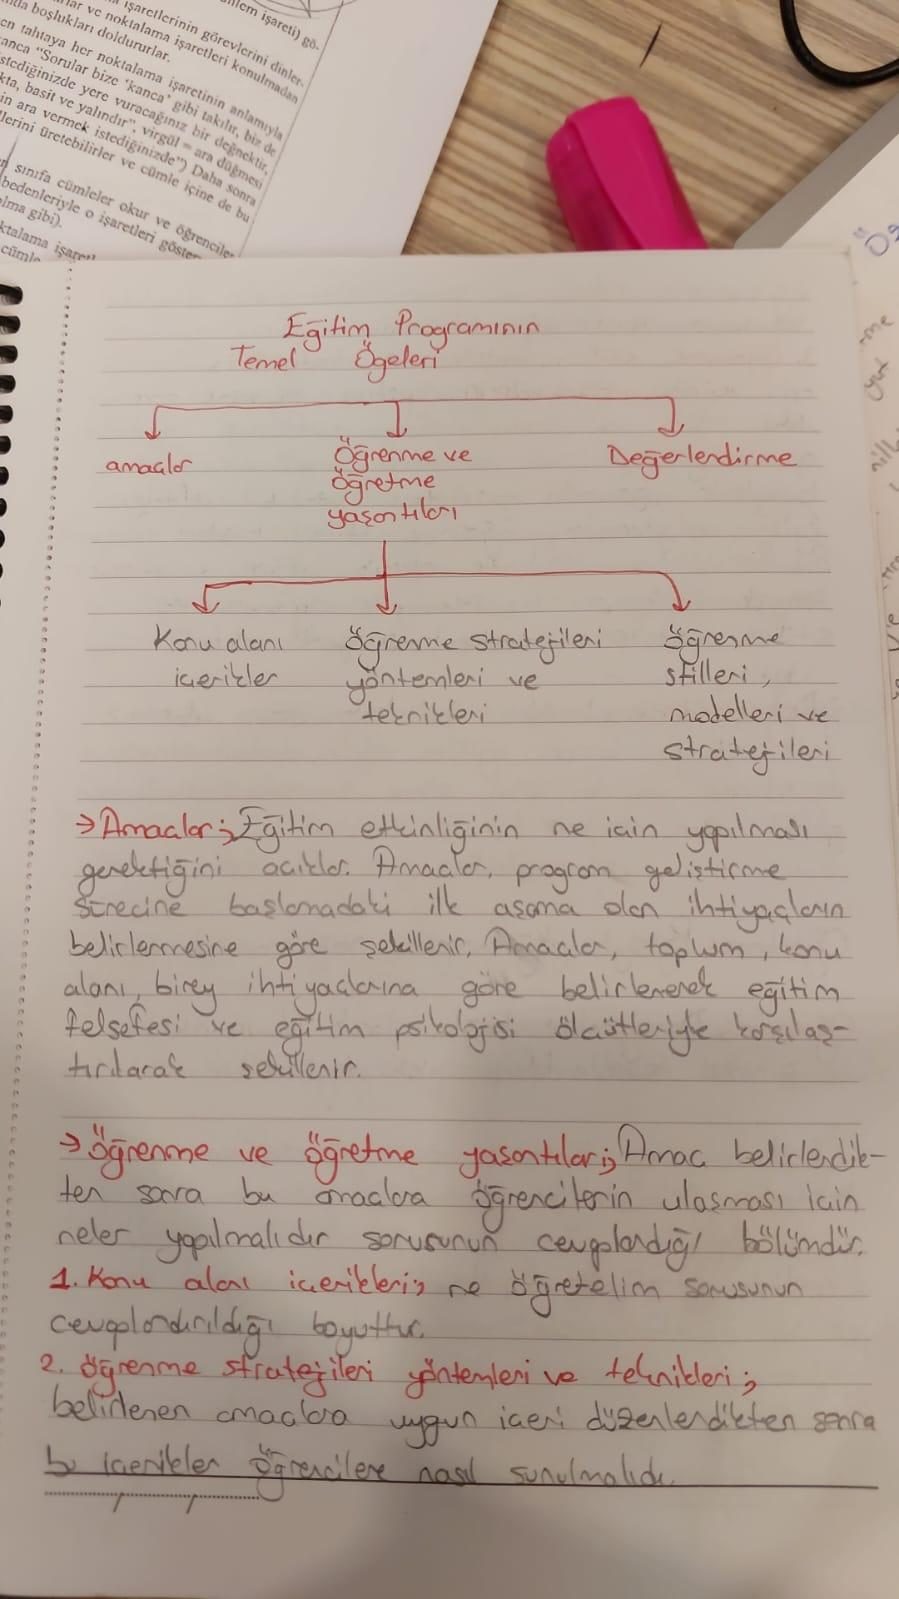 işaretlerinin görevlerini dinler-
ar ve noktalama işaretleri konulmadan
boşlukları doldururlar.
en tahtaya her noktalama işaretinin anlamıyla
kanca "Sorular bize 'kanca' gibi takılır, biz de
istediğinizde yere vuracağınız bir değnektir,
kta, basit ve yalındır", virgül = ara düğmesi
in ara vermek istediğinizde") Daha sonra
lerini üretebilirler ve cümle içine de bu
sınıfa cümleler okur ve öğrenciler
bedenleriyle o işaretleri göster
olma gibi).
ktalama işaret
cümle
Eğitim Programının
Temel Ögeleri
amaçlar
Öğrenme ve
öğretme
yaşantıları
Değerlendirme
Konu alanı
içerikler
Öğrenme stratejileri
yöntemleri ve
teknikleri
Öğrenme
stilleri,
modelleri ve
stratejileri
→ Amaçlar; Eğitim etkinliğinin ne için yapılması
gerektiğini açıklar. Amaçlar, program geliştirme
sürecine başlamadaki ilk aşama olan ihtiyaçların
belirlenmesine göre şekillenir. Amaçlar, toplum, konu
alanı, birey ihtiyaçlarına göre belirlenerek eğitim
felsefesi ve eğitim psikolojisi ölçütleriyle karşılaş-
tırılarak şekillenir.
→ Öğrenme ve öğretme yaşantıları; Amaç belirlendik-
ten sonra bu amaçlara öğrencilerin ulaşması için
neler yapılmalıdır sorusunun cevaplandığı bölümdür.
1. Konu alanı içerikleri; ne öğretelim sorusunun
cevaplandırıldığı boyuttur.
2. Öğrenme stratejileri yöntemleri ve teknikleri;
belirlenen amaçlara uygun içeri düzenlerdikten sonra
bu içerikler öğrencilere nasıl sunulmalıdı.